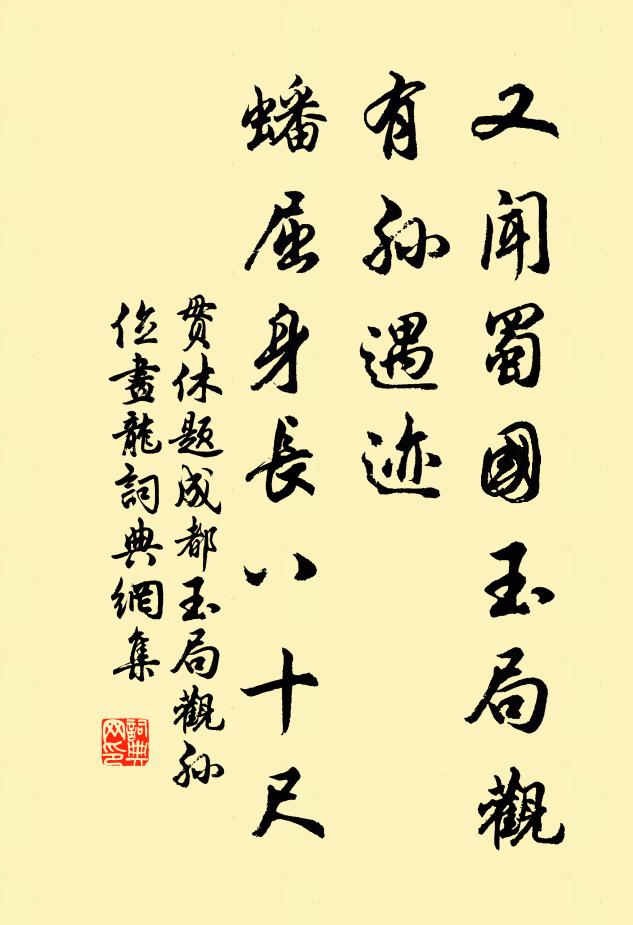 又聞蜀國玉局觀
有孫遇迹
蟠屈身長八十尺
貫休題成都玉局觀孫
位畫龍詞典網集
詞典
网印